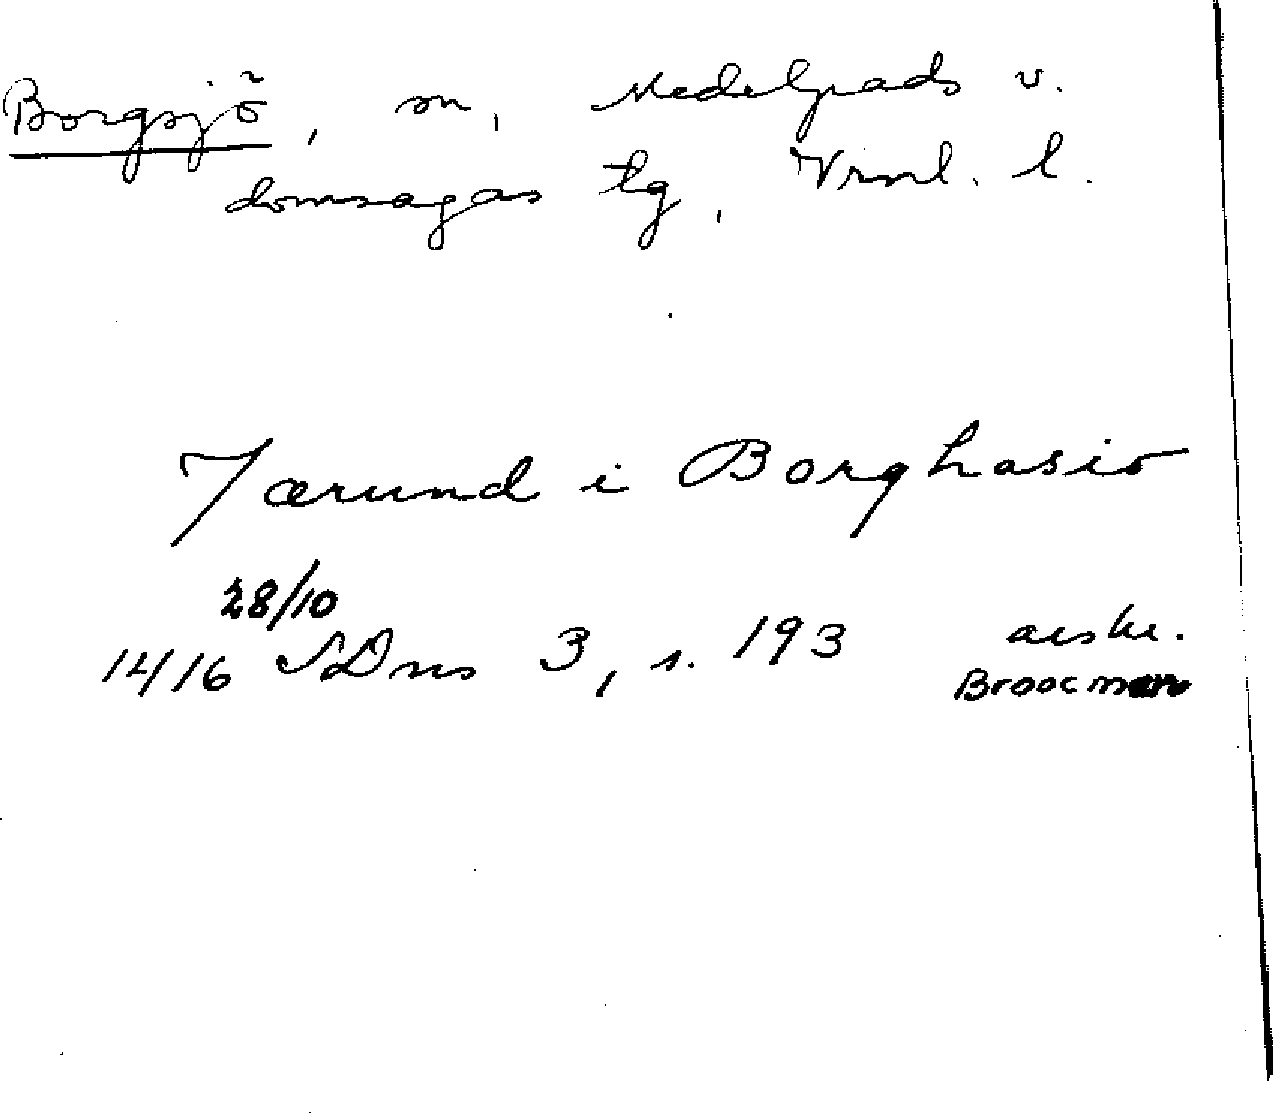 Borgsjö, sn, Medelpads v.
domsagas tg, Vrnl. l.
Jærund i Borghasio
28/10
1416 SDns 3, s. 193 avskr.
Broocman